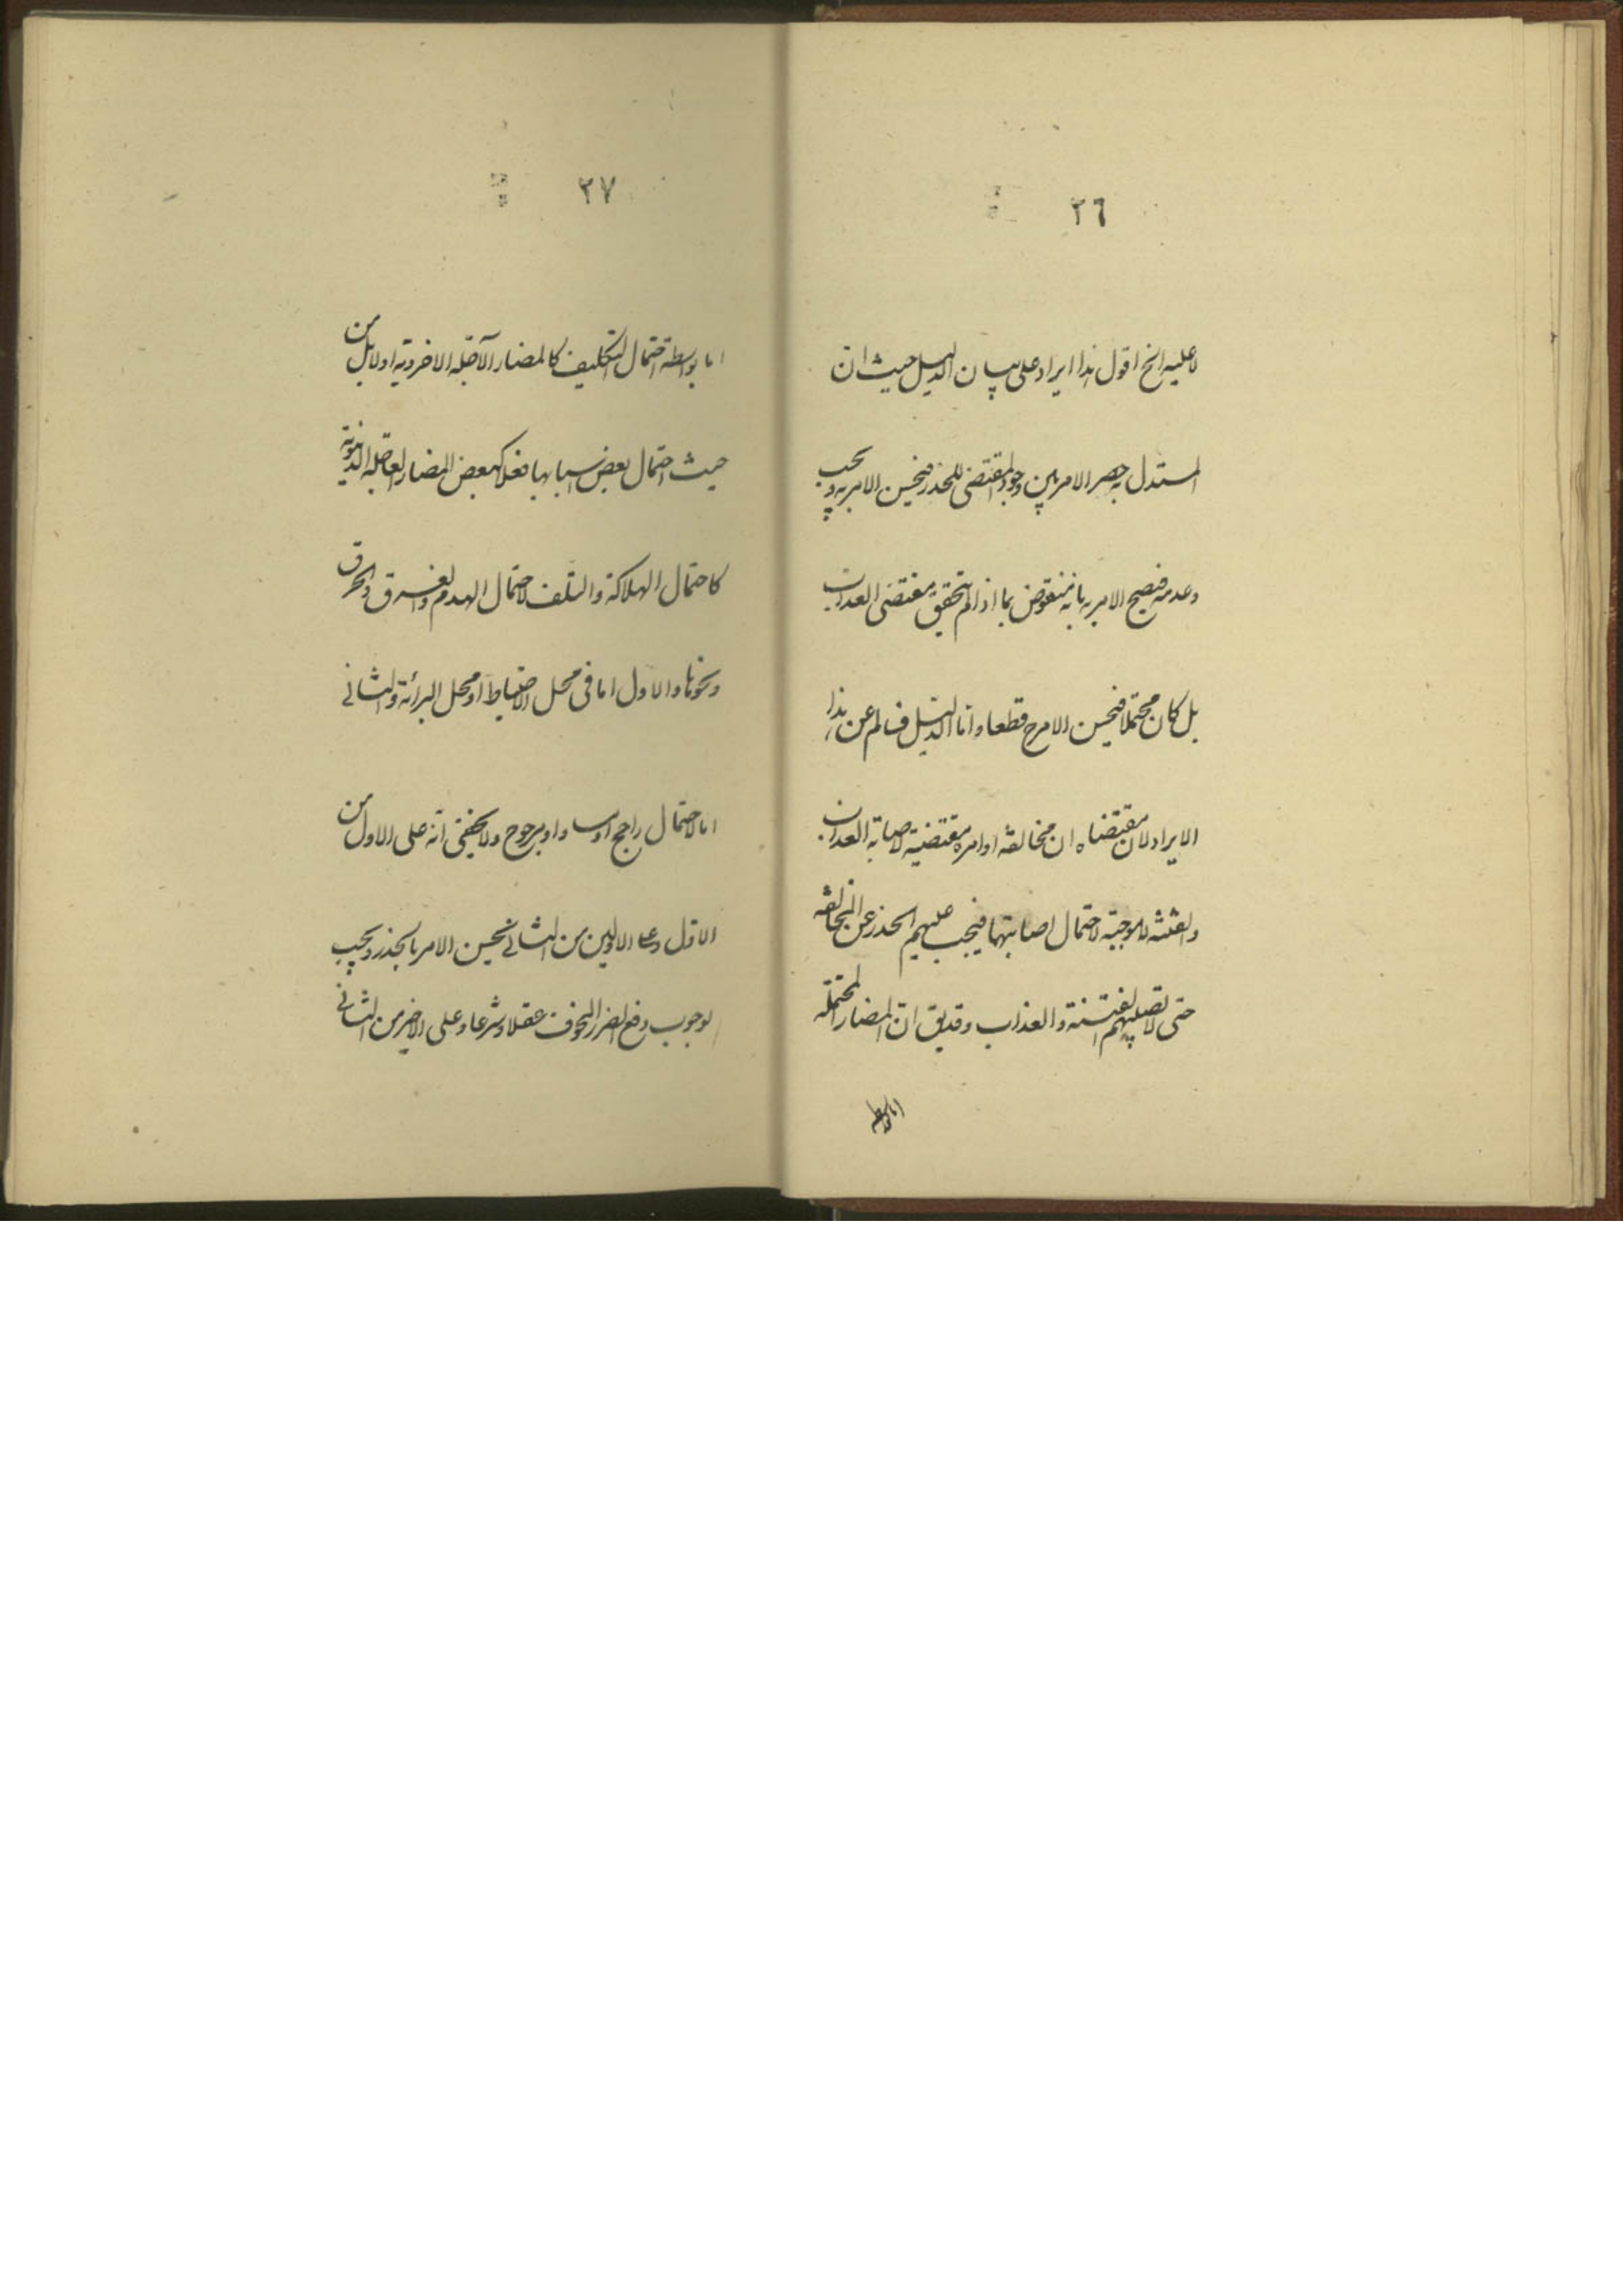 ٢٦
لا عليه الخ اقول هذا ايراد على بيان الدليل حيث ان
المستدل به حصر الامر بين وجود المقتضى للحذر فيحسن الامر به ويجب
وعدمه فيصح الامر به بانه منقوض بما اذا لم يتحقق مقتضى العذاب
بل كان محتملا فيحسن الامر ح قطعا واما الدليل فسالم عن هذا
الايراد لان مقتضاه ان مخالفة اوامره مقتضية لاصابة العذاب
والفتنة لا موجبة لاحتمال اصابتهما فيجب عليهم الحذر عن المخالفة
حتى لا تصيبهم الفتنة والعذاب وقد يق ان المضار المحتملة
اما بواسطه
٢٧
اما بواسطة احتمال التكليف كالمضار الآجلة الاخروية اولا بل من
حيث احتمال بعض اسبابها فعلا كبعض المضار العاجلة الدنيوية
كاحتمال الهلاكة والتلف لاحتمال الهدم والغرق والحرق
ونحوها والاول اما فى محل الاحتياط او محل البرائة والثانى
اما لاحتمال راجح او مساو او مرجوح ولا يخفى انه على الاول من
الاول وعلى الاولين من الثانى يحسن الامر بالحذر ويجب
لوجوب دفع الضرر المخوف عقلا وشرعا وعلى الاخير من الثانى